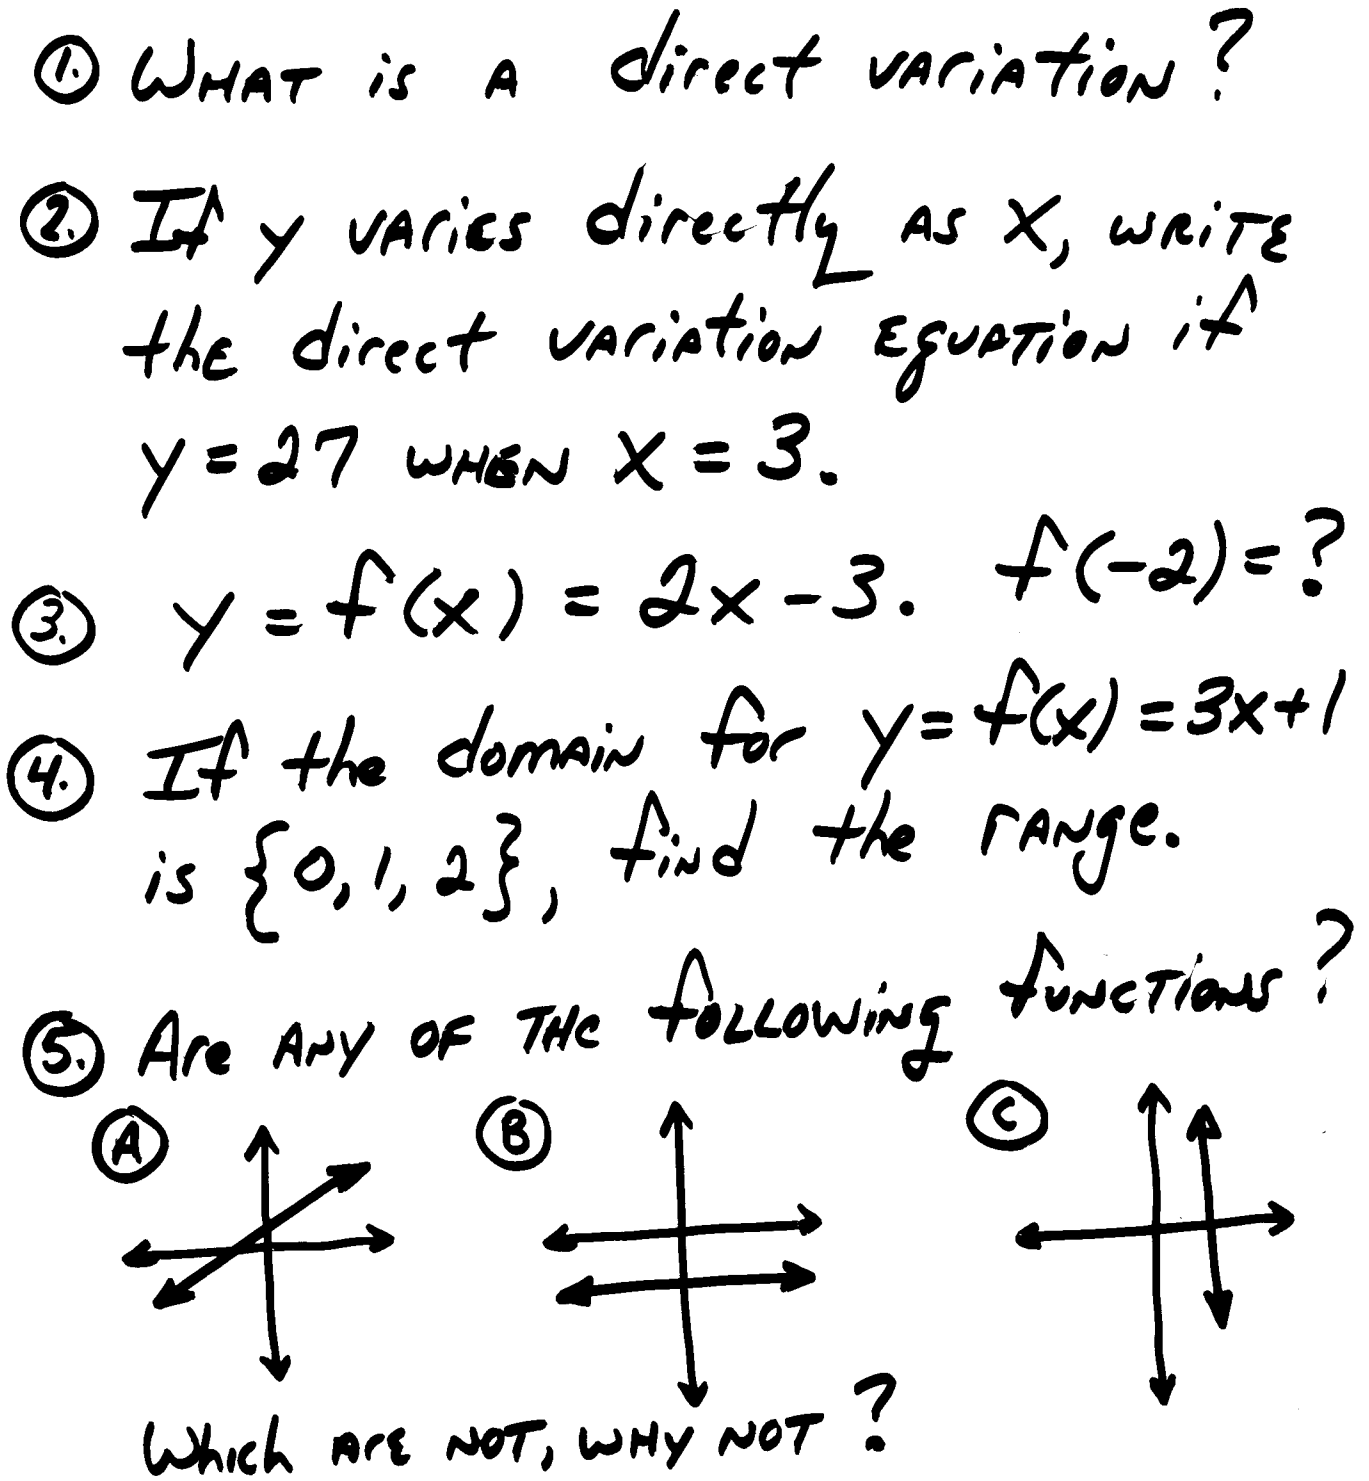 1. WHAT is A direct variation?
2. If y varies directly as x, write
the direct variation equation if
y = 27 when x = 3.
3. y = f(x) = 2x - 3. f(-2) = ?
4. If the domain for y = f(x) = 3x + 1
is {0, 1, 2}, find the range.
5. Are any of the following functions?
A B C
Which are not, why not?